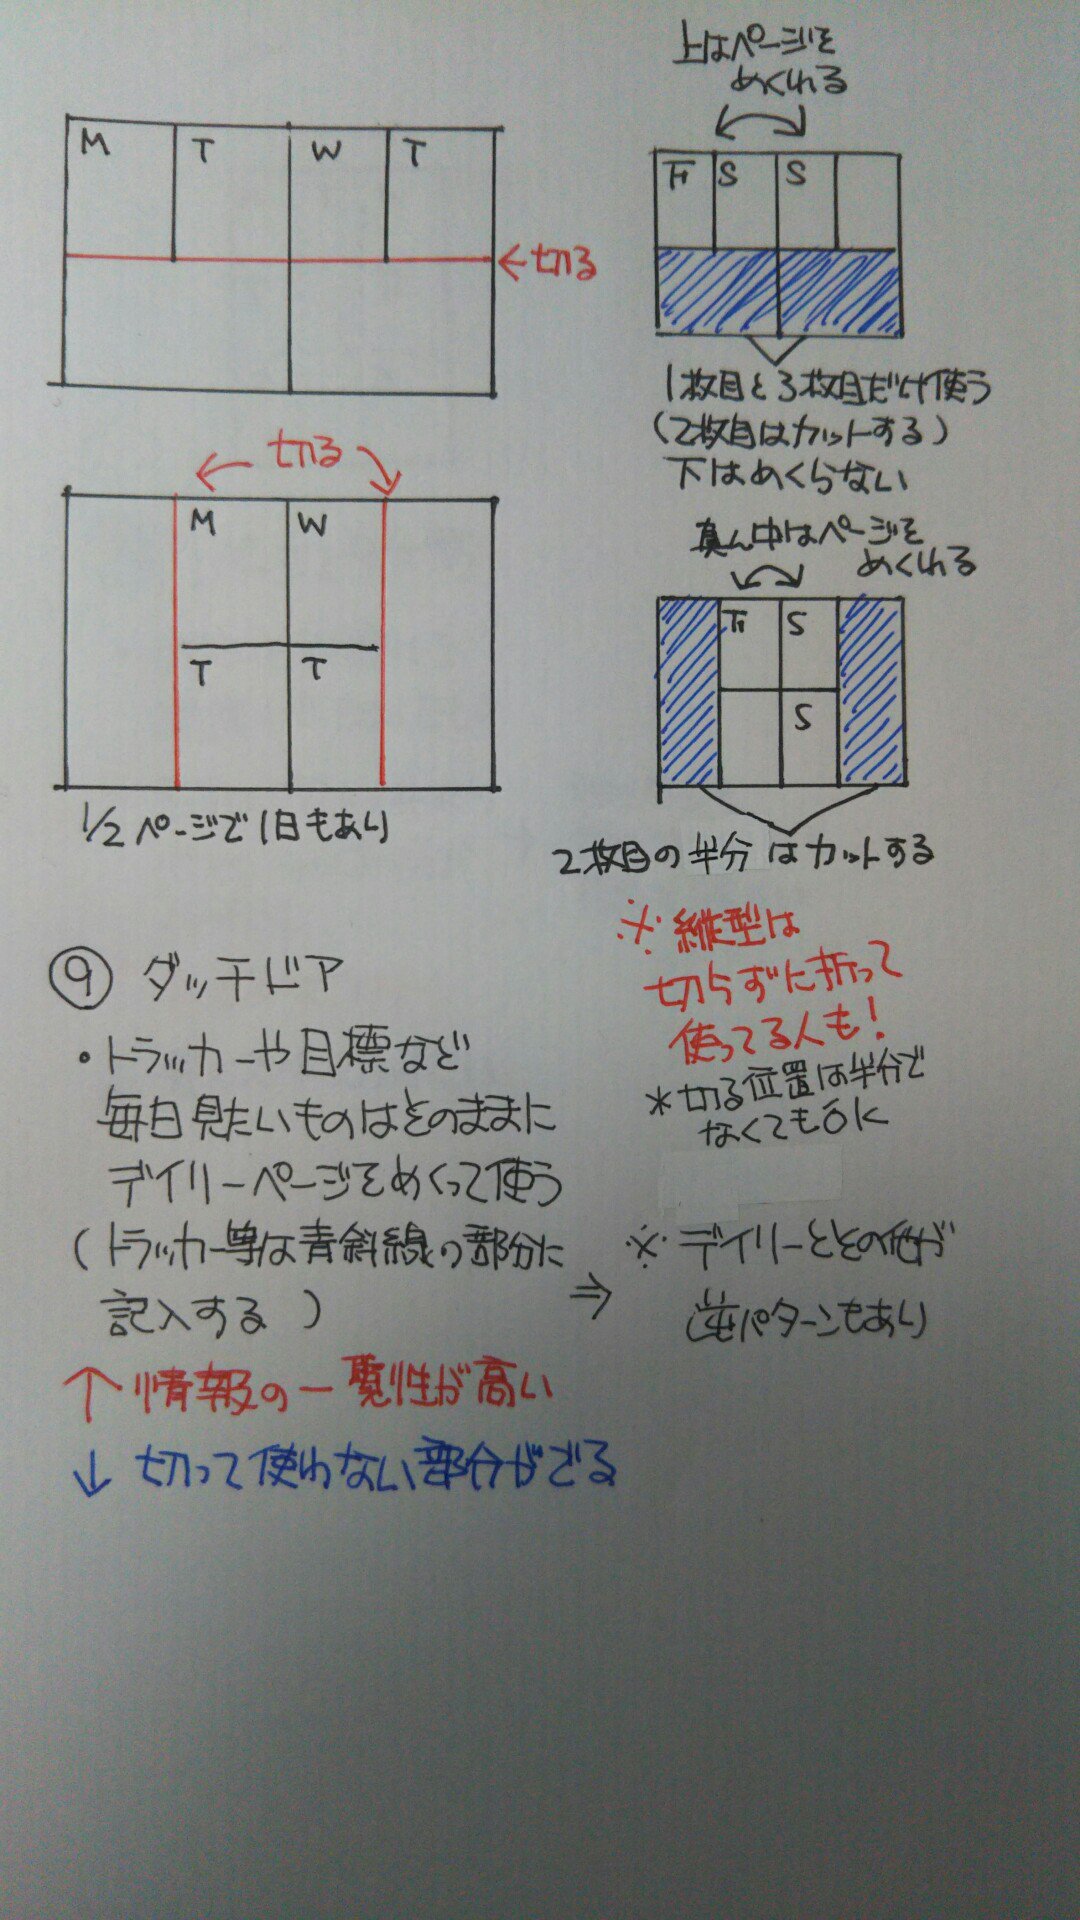 M T W T
←切る
上はページを
めくれる
F S S
1枚目と3枚目だけ使う
(2枚目はカットする)
下はめくらない
切る
M W
T T
1/2ページで1日もあり
真ん中はページを
めくれる
F S
S
2枚目の半分はカットする
⑨ ダッチドア
・トラッカーや目標など
毎日見たいものはそのままに
デイリーページをめくって使う
(トラッカー等は青斜線の部分に
記入する)
⇒
↑情報の一覧性が高い
↓切って使わない部分がでる
※縦型は
切らずに折って
使ってる人も!
*切る位置は半分で
なくてもOK
※デイリーとその他が
逆パターンもあり